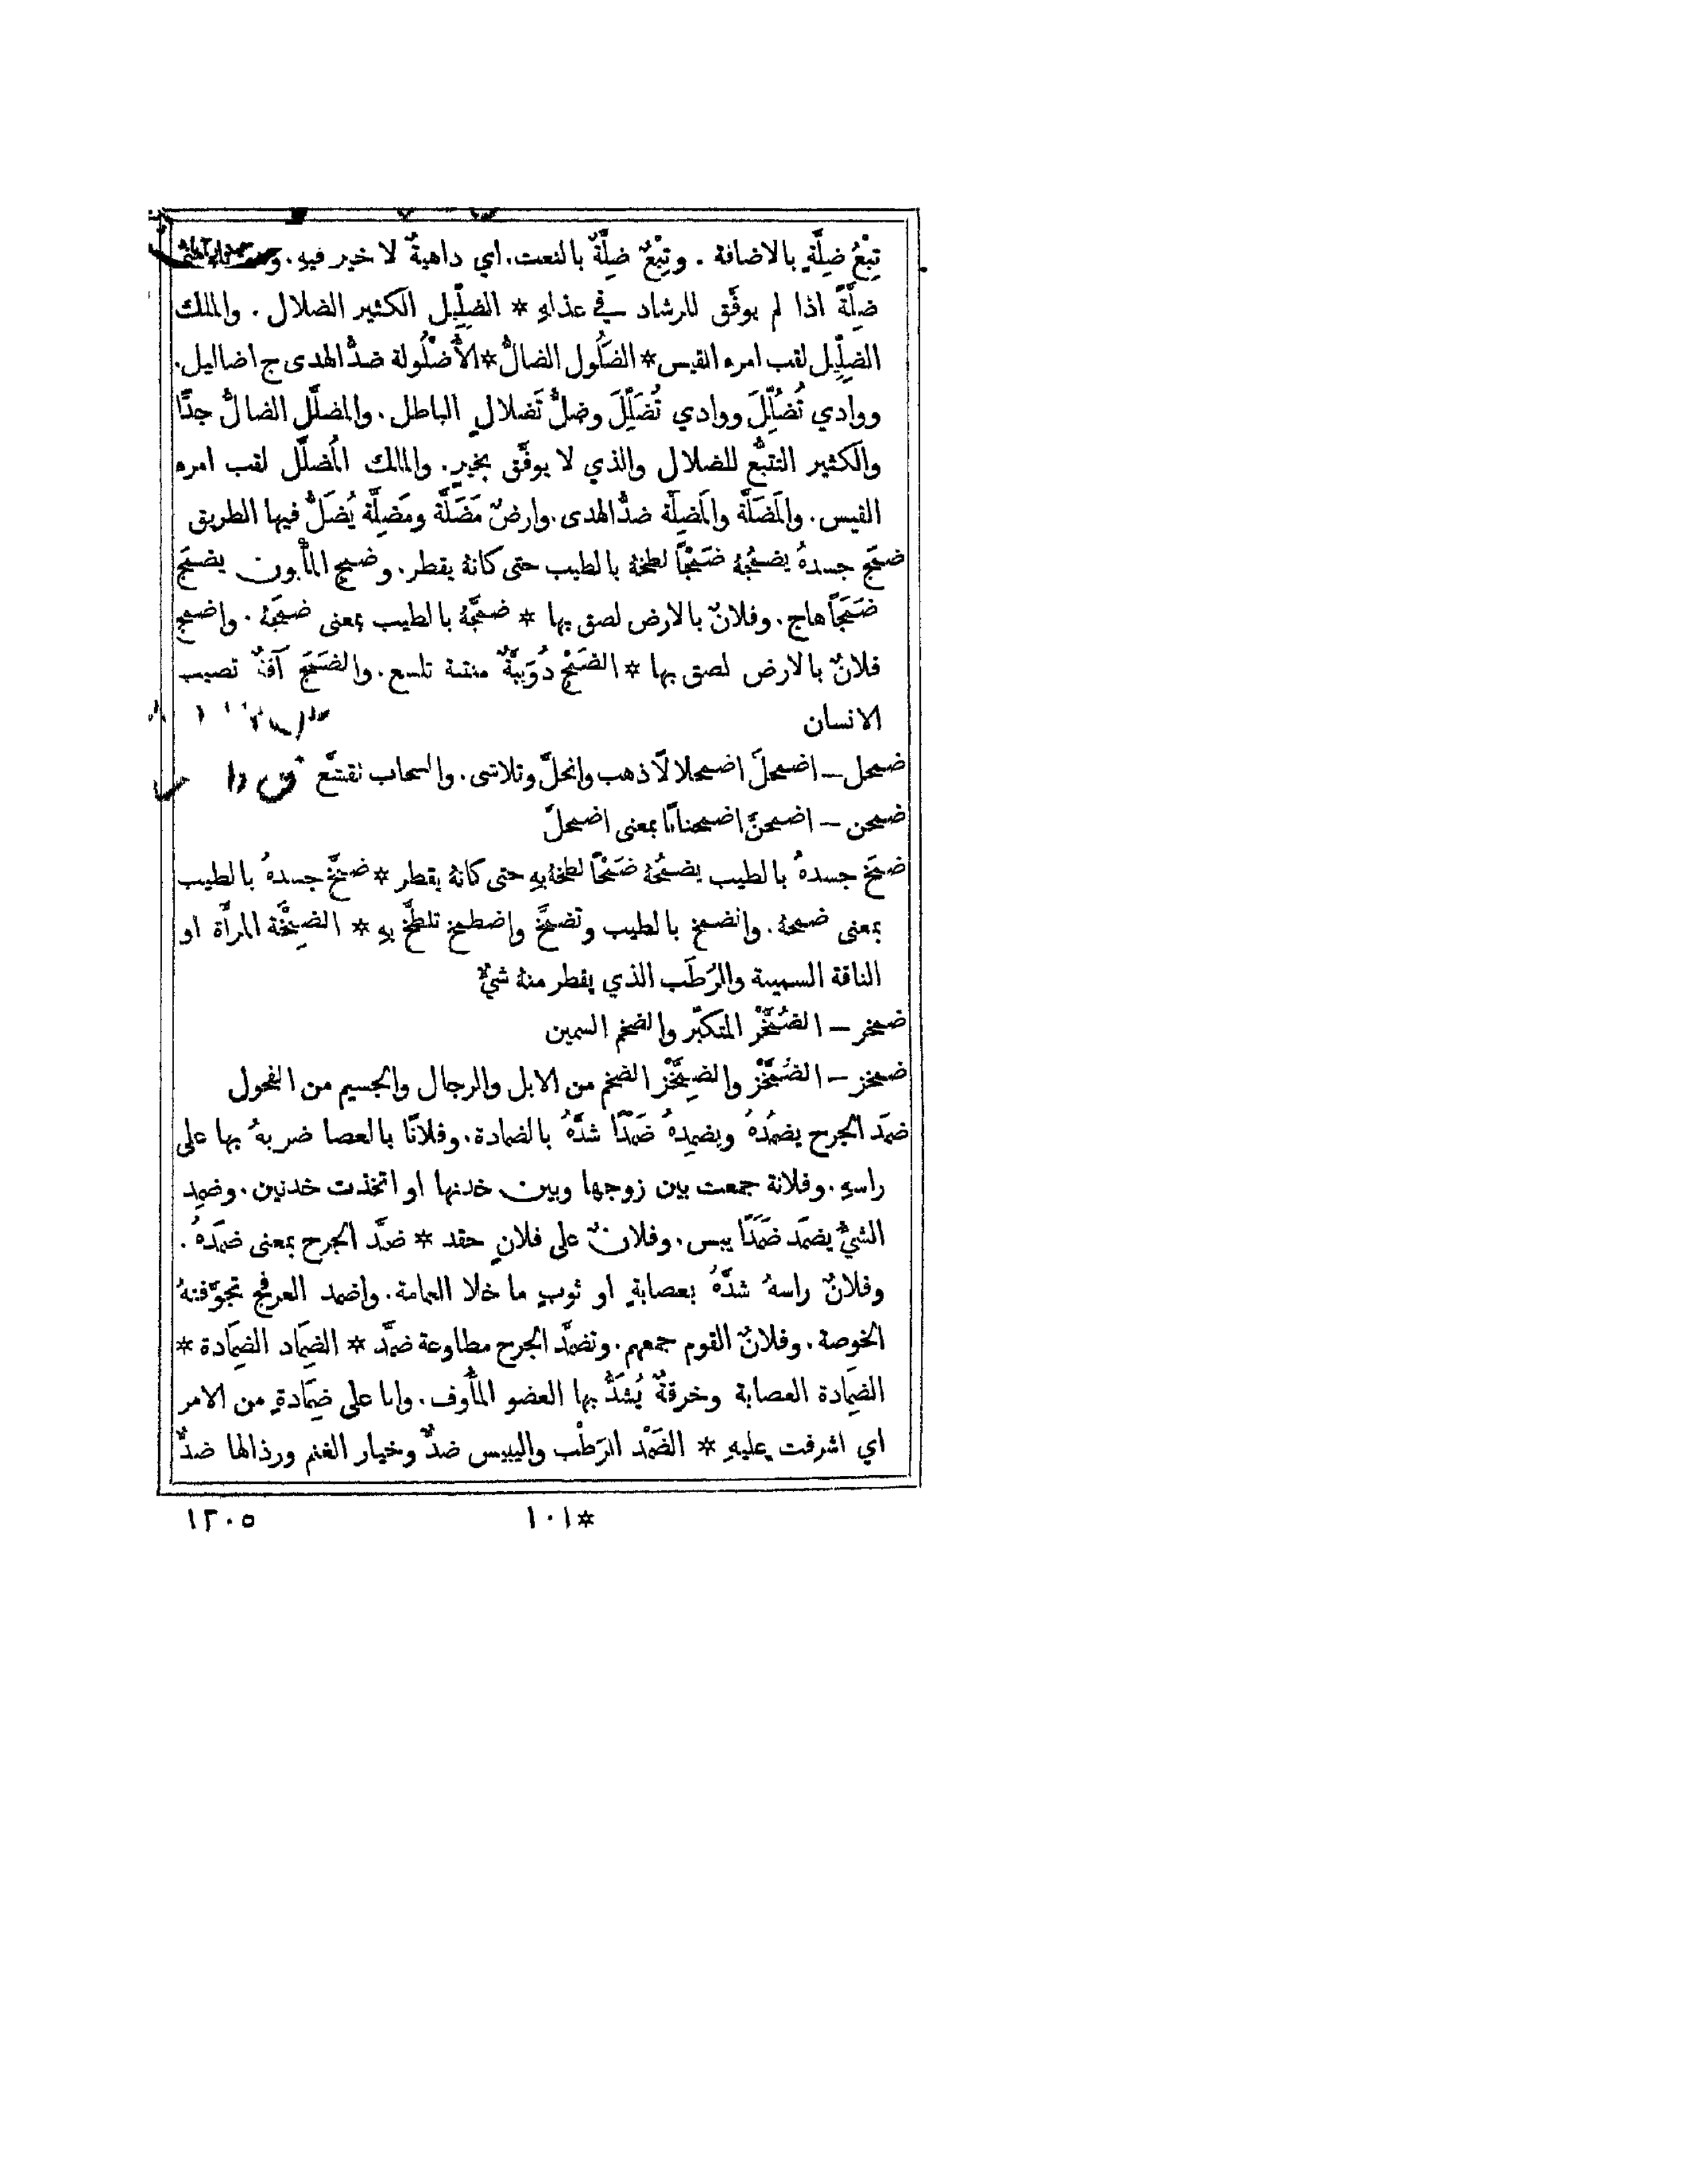 تِبْعُ ضِلَّةٍ بالاضافة . وتِبْعٌ ضِلَّةٌ بالنعت. اي داهيةٌ لا خير فيهِ.
ضِلَّةً اذا لم يوفَّق للرشاد في عذلهِ * الضِلِّيل الكثير الضلال . والملك
الضِلِّيل لقب امرء القيس * الضَلُول الضالُّ * الأُضْلُولة ضدُّ الهدى ج اضاليل.
ووادي تُضُلِّلَ ووادي تُضَلِّلَ وضلُّ تَضلالٍ الباطل. والمضلَّل الضالُّ جدًّا
والكثير التتبُّع للضلال والذي لا يوفَّق بخيرٍ. والملك المُضلَّل لقب امرء
القيس. والمَضَلَّة والمَضِلَّة ضدُّ الهدى. وارضٌ مَضَلَّة ومَضِلَّة يُضَلُّ فيها الطريق
ضمَج جسدهُ يضمُجهُ ضَمْجًا لطخهُ بالطيب حتى كانهُ يقطر. وضمِج المأْبون يضمَج
ضَمَجًا هاج. وفلانٌ بالارض لصق بها * ضمَّجهُ بالطيب بمعنى ضمجهُ. واضمج
فلانٌ بالارض لصق بها * الضَمْج دُوَيبَّةٌ منتنة تلسع. والضَمَج آفةٌ تصيب
الانسان
ضمحل – اضمحلَّ اضمحلالًا ذهب وانحلَّ وتلاشى. والسحاب تقشَّع
ضمحن – اضمحنَّ اضمحنانًا بمعنى اضمحلَّ
ضمَخ جسدهُ بالطيب يضمُخهُ ضَمْخًا لطخهُ بهِ حتى كانهُ يقطر * ضمَّخ جسدهُ بالطيب
بمعنى ضمخهُ. وانضمخ بالطيب وتضمَّخ واضطمخ تلطَّخ بهِ * الضِمْخَة المرأَة او
الناقة السمينة والرُطَب الذي يقطر منهُ شيءٌ
ضمخر – الضُمَّخْر المتكبّر والضخم السمين
ضمخز – الضُمَّخْز والضِمَّخْز الضخم من الابل والرجال والجسيم من الفحول
ضمَد الجرح يضمُدهُ ويضمِدهُ ضَمْدًا شدَّهُ بالضمادة. وفلانًا بالعصا ضربهُ بها على
راسهِ. وفلانة جمعت بين زوجها وبين خدنها او اتخذت خدنين. وضمِد
الشيءُ يضمَد ضَمَدًا يبس. وفلانٌ على فلانٍ حقد * ضمَّد الجرح بمعنى ضمَدهُ.
وفلانٌ راسهُ شدَّهُ بعصابةٍ او ثوبٍ ما خلا العمامة. واضمد العرفج تجوَّفتهُ
الخوصة. وفلانٌ القوم جمعهم. وتضمَّد الجرح مطاوعة ضمَّد * الضِمَاد الضِمَادة *
الضِمَادة العصابة وخرقةٌ يُشَدُّ بها العضو المأُوف. وانا على ضِمَادةٍ من الامر
اي اشرفت عليهِ * الضَمْد الرَطْب واليبيس ضدٌّ وخيار الغنم ورذالها ضدٌّ
*١٠١ ١٢٠٥